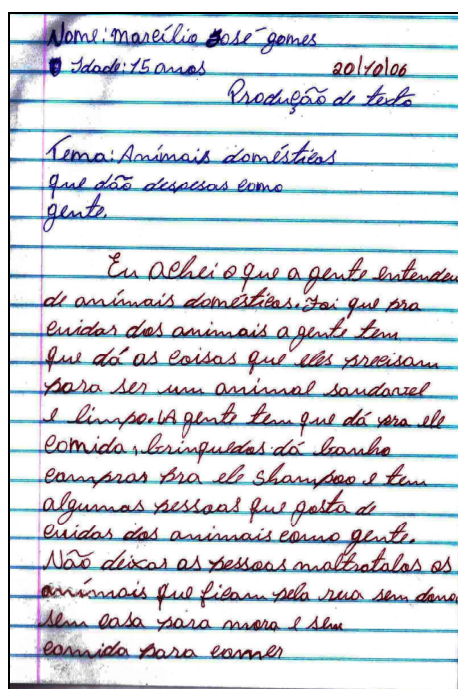 Nome: marcílio José gomes
Idade: 15 anos 20/10/06
Produção de texto
Tema: Animais domésticos
que dão despesas como
gente.
Eu achei o que a gente entendeu
de animais domésticos. Foi que pra
cuidar dos animais a gente tem
que dá as coisas que eles precisam
para ser um animal saudavel
e limpo. A gente tem que dá pra ele
comida, brinquedos dá banho
compras pra ele shampoo e tem
algumas pessoas que gosta de
cuidar dos animais como gente.
Não deixar as pessoas maltratalos os
animais que ficam pela rua sem dono
sem casa para mora e sem
comida para comer